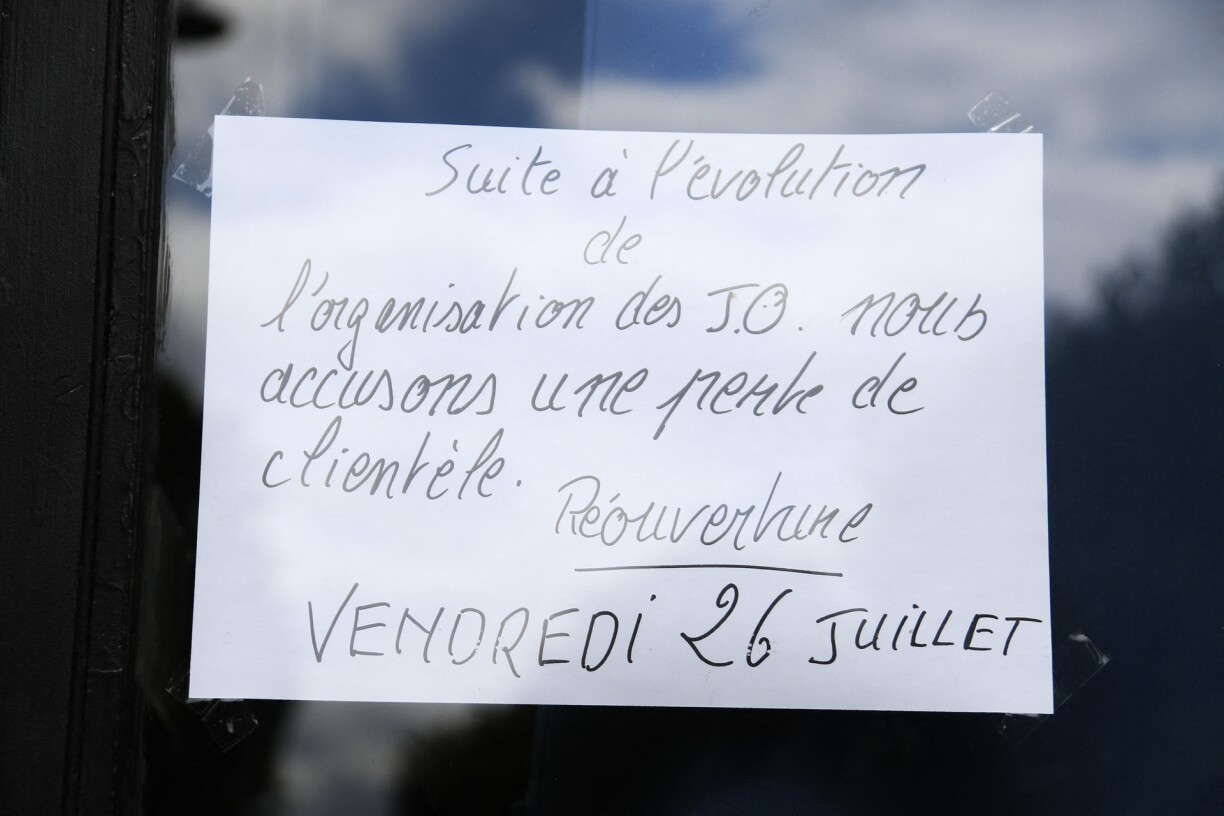 Suite à l'évolution
de
l'organisation des J.O. nous
accusons une perte de
clientèle.
Réouverture
VENDREDI 26 JUILLET